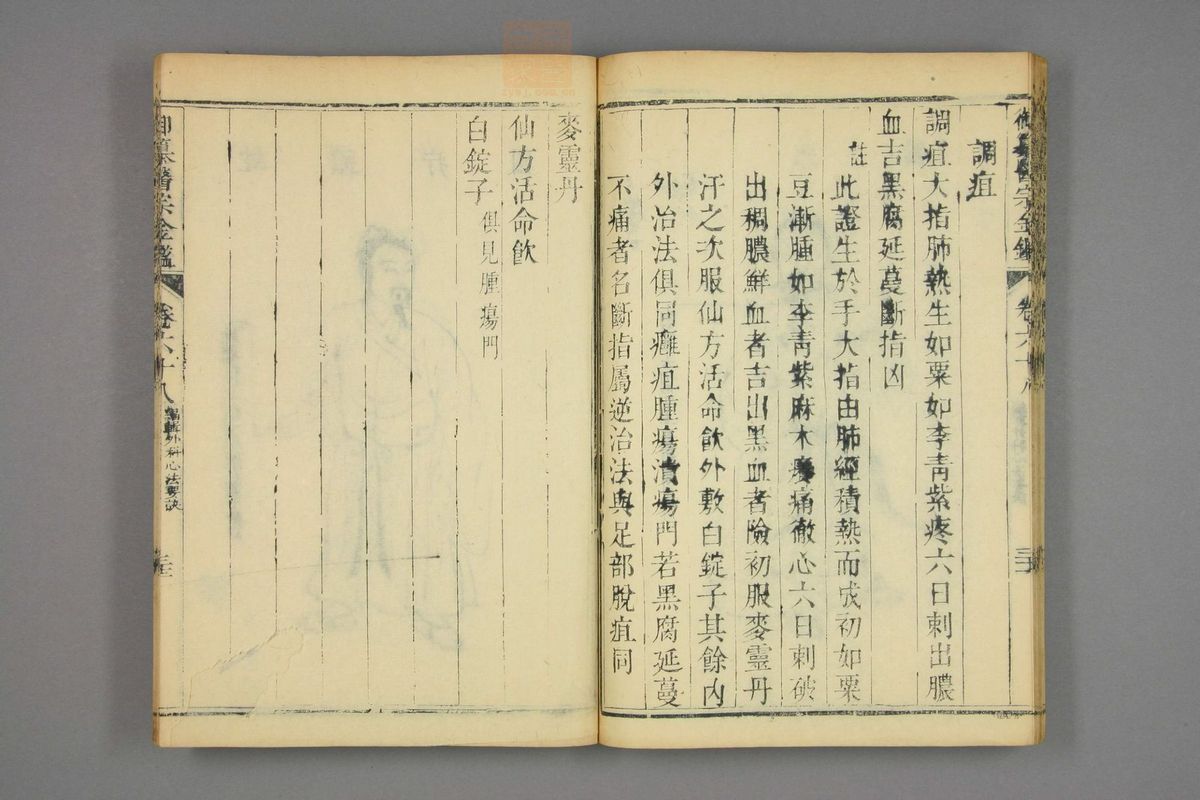 調疽
調疽大指肺熱生如粟如李青紫疼六日刺出膿
血吉黑腐延蔓斷指凶
註此證生於手大指由肺經積熱而成初如粟
豆漸腫如李青紫麻木癢痛徹心六日刺破
出稠膿鮮血者吉出黑血者險初服麥靈丹
汗之次服仙方活命飲外敷白錠子其餘內
外治法俱同癰疽腫瘍潰瘍門若黑腐延蔓
不痛者名斷指屬逆治法與足部脫疽同
麥靈丹
仙方活命飲
白錠子 俱見腫瘍門
御纂醫宗金鑑 卷六十八 編輯外科心法要訣